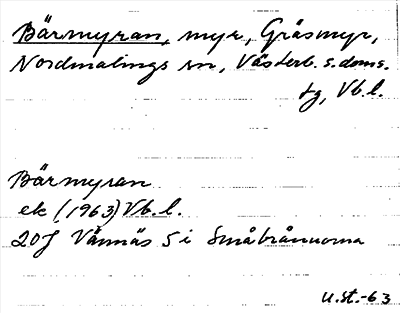 Bärmyran, myr, Gräsmyr,
Nordmalings sn, Västerb. s. doms.
tg, Vb.l.
Bärmyran
ek (1963) Vb.l.
20J Vännäs 5i Småbrännorna
U.st.-63